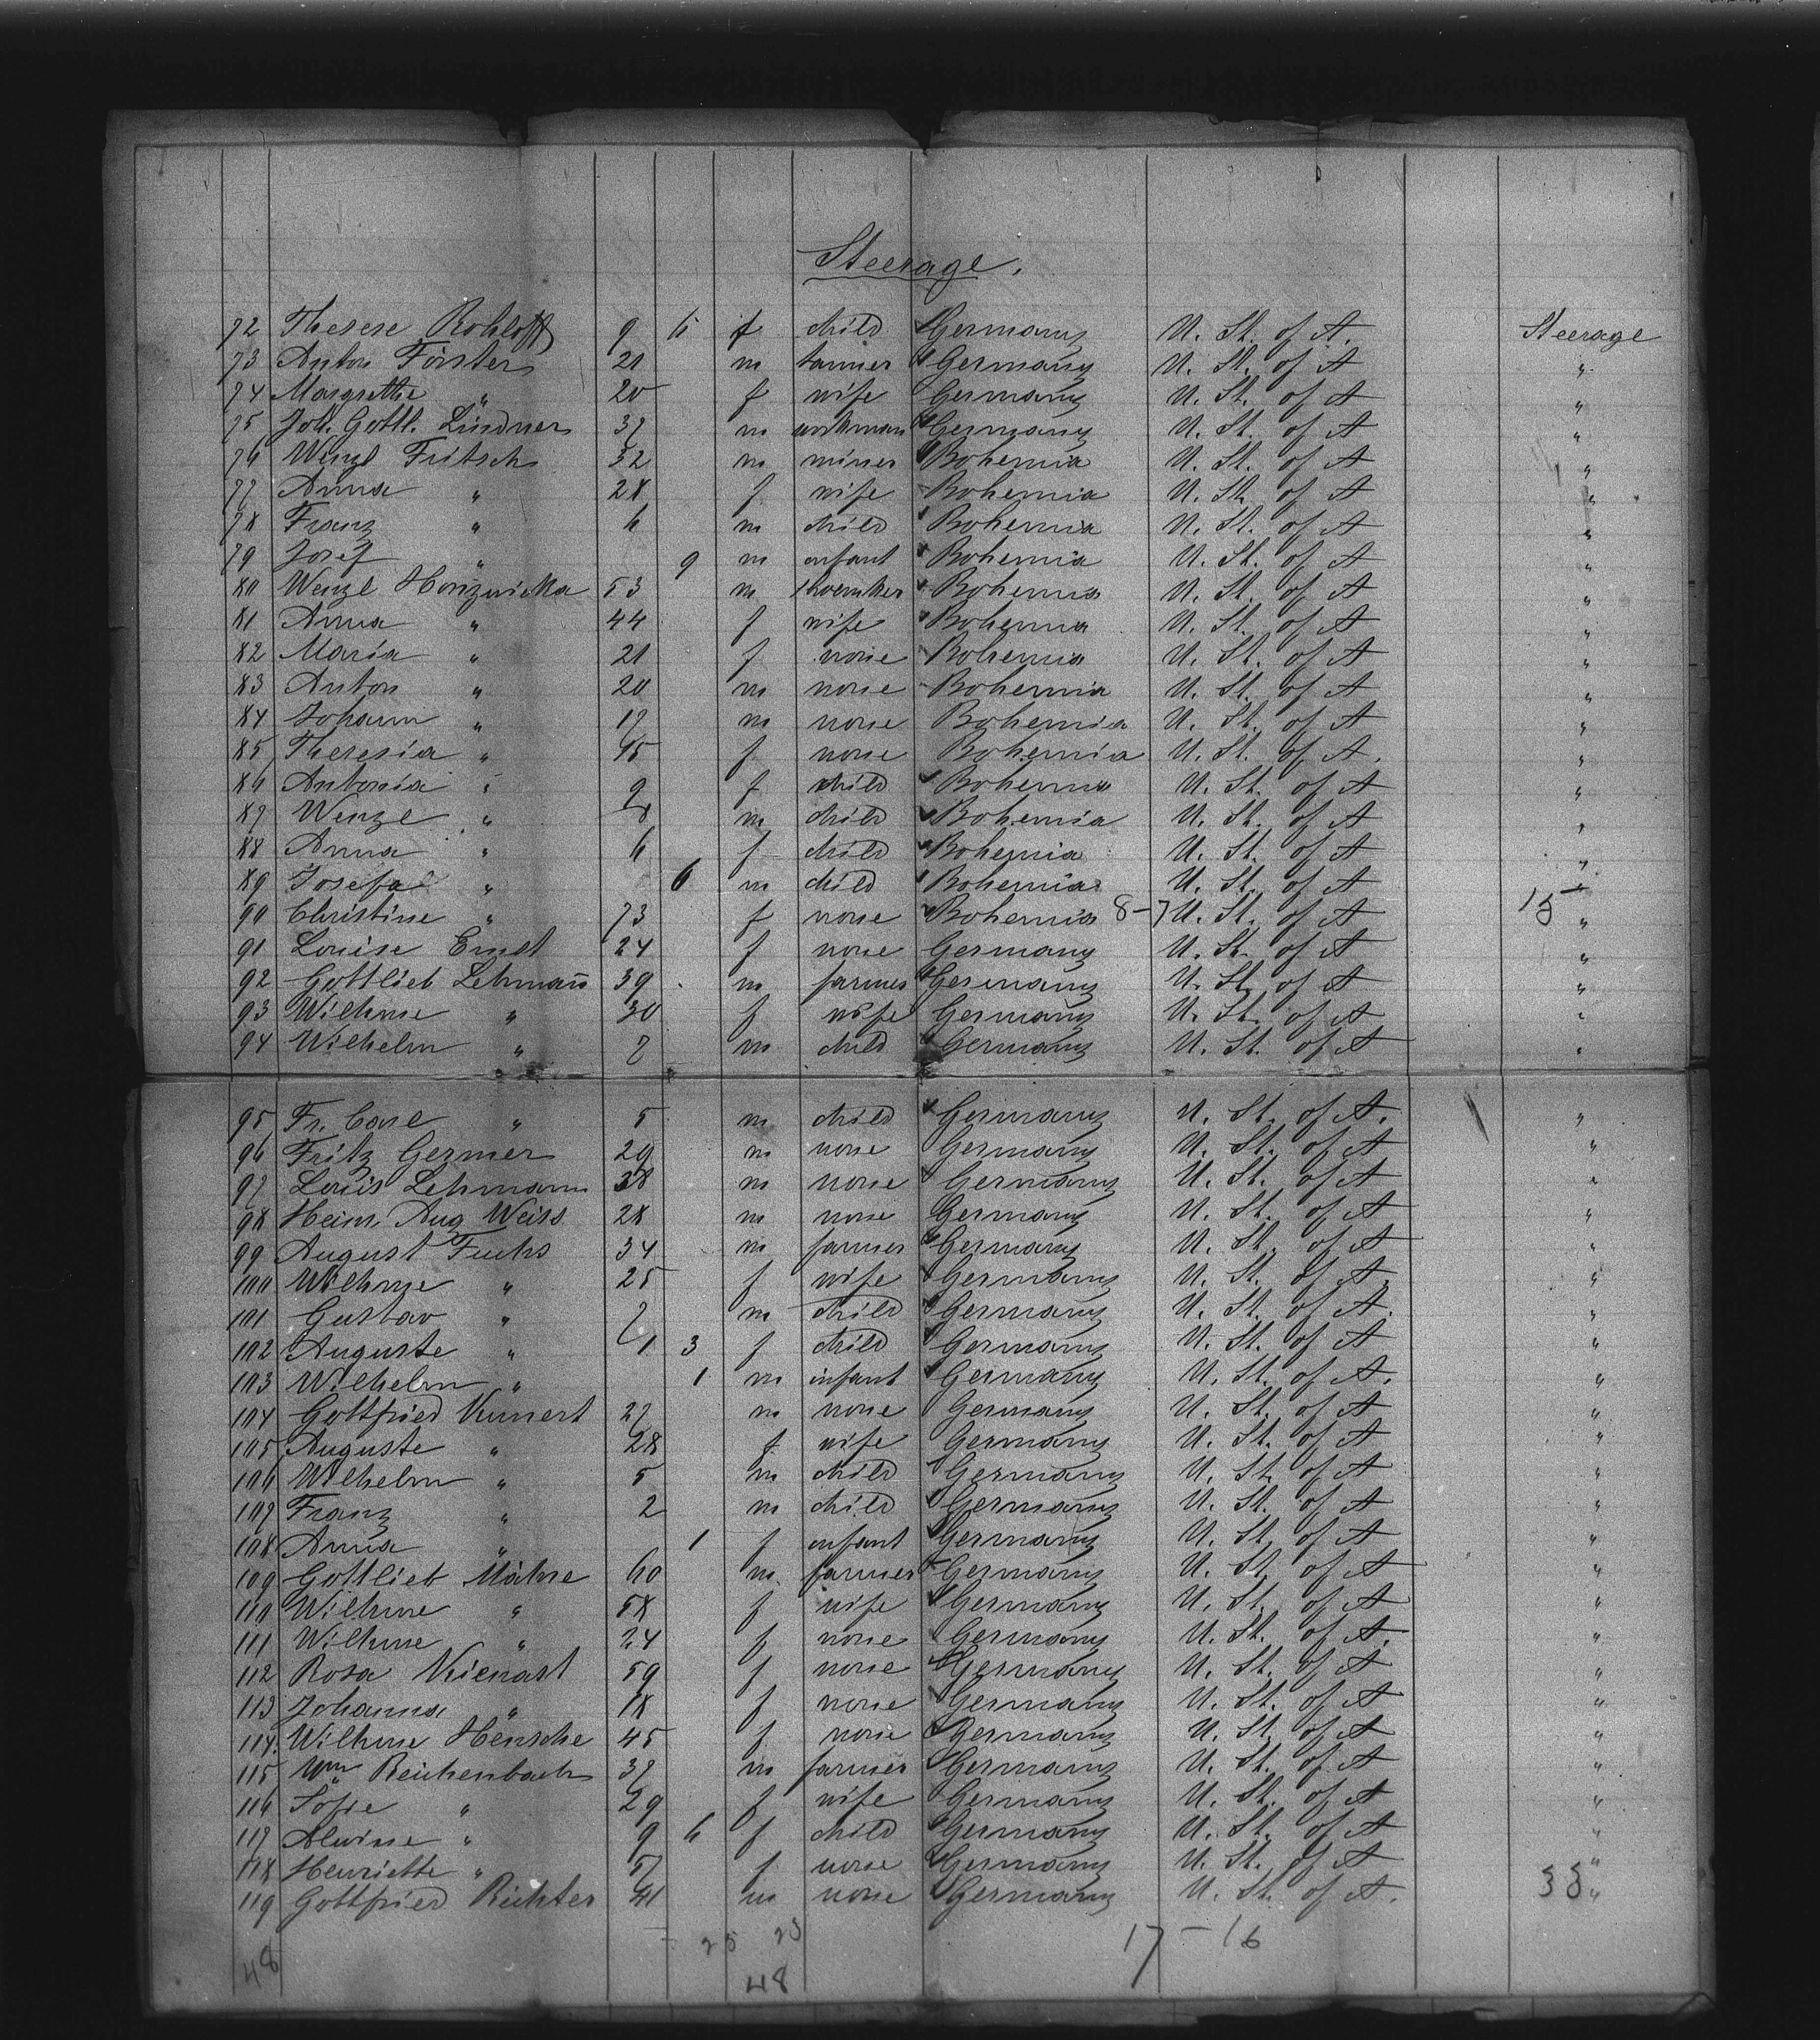 Steerage.
72 Therese Rohloff 9 6 f child Germany U. St. of A. Steerage
73 Anton Förster 21 m tanner Germany U. St. of A "
74 Margrethe " 20 f wife Germany U. St. of A "
75 Joh. Gottl. Lindner 37 m workman Germany U. St. of A "
76 Wenzl Fritsch 32 m miner Bohemia U. St. of A "
77 Anna " 28 f wife Bohemia U. St. of A "
78 Franz " 6 m child Bohemia U. St. of A "
79 Josef " 9 m infant Bohemia U. St. of A "
80 Wenzl 53 m Bohemia U. St. of A "
81 Anna " 44 f wife Bohemia U. St. of A "
82 Maria " 21 f none Bohemia U. St. of A "
83 Anton " 20 m none Bohemia U. St. of A "
84 Johann " 17 m none Bohemia U. St. of A "
85 Theresia " 15 f none Bohemia U. St. of A. "
86 Antonia " 9 f child Bohemia U. St. of A "
87 Wenzl " 8 m child Bohemia U. St. of A "
88 Anna " 6 f child Bohemia U. St. of A "
89 Josef " 6 m child Bohemia U. St. of A "
90 Christine " 73 f none Bohemia 8-7 U. St. of A 15 "
91 Louise Ernst 24 f none Germany U. St. of A "
92 Gottlieb Lehmañ 39 m farmer Germany U. St. of A "
93 Wilhme " 30 f wife Germany U. St. of A "
94 Wilhelm " 7 m child Germany U. St. of A "
95 Fr. Carl " 5 m child Germany U. St. of A. "
96 Fritz Germer 29 m none Germany U. St. of A "
97 Louis Lehmann 38 m none Germany U. St. of A "
98 Heinr. Aug Weiss 28 m none Germany U. St. of A "
99 August Fuchs 34 m farmer Germany U. St. of A "
100 Wilhme " 25 f wife Germany U. St. of A. "
101 Gustav " 7 m child Germany U. St. of A. "
102 Auguste " 1 3 f child Germany U. St. of A "
103 Wilhelm " 1 m infant Germany U. St. of A. "
104 Gottfried Kunert 27 m none Germany U. St. of A "
105 Auguste " 28 f wife Germany U. St. of A "
106 Wilhelm " 5 m child Germany U. St. of A "
107 Franz " 2 m child Germany U. St. of A "
108 Anna " 1 f infant Germany U. St. of A "
109 Gottlieb 60 m farmer Germany U. St. of A "
110 Wilhme " 58 f wife Germany U. St. of A "
111 Wilhme " 24 f none Germany U. St. of A. "
112 Rosa Kienast 59 f none Germany U. St. of A "
113 Johanna " 18 f none Germany U. St. of A "
114. Wilhme Hensche 45 f none Germany U. St. of A "
115 Wm Reichenbach 37 m farmer Germany U. St. of A "
116 Sofie " 29 f wife Germany U. St. of A "
117 Alwine " 9 6 f child Germany U. St. of A "
118 Henriette " 57 f none Germany U. St. of A "
119 Gottfried Richter 41 m none Germany U. St. of A. 33 "
25 23 17-16
48 48